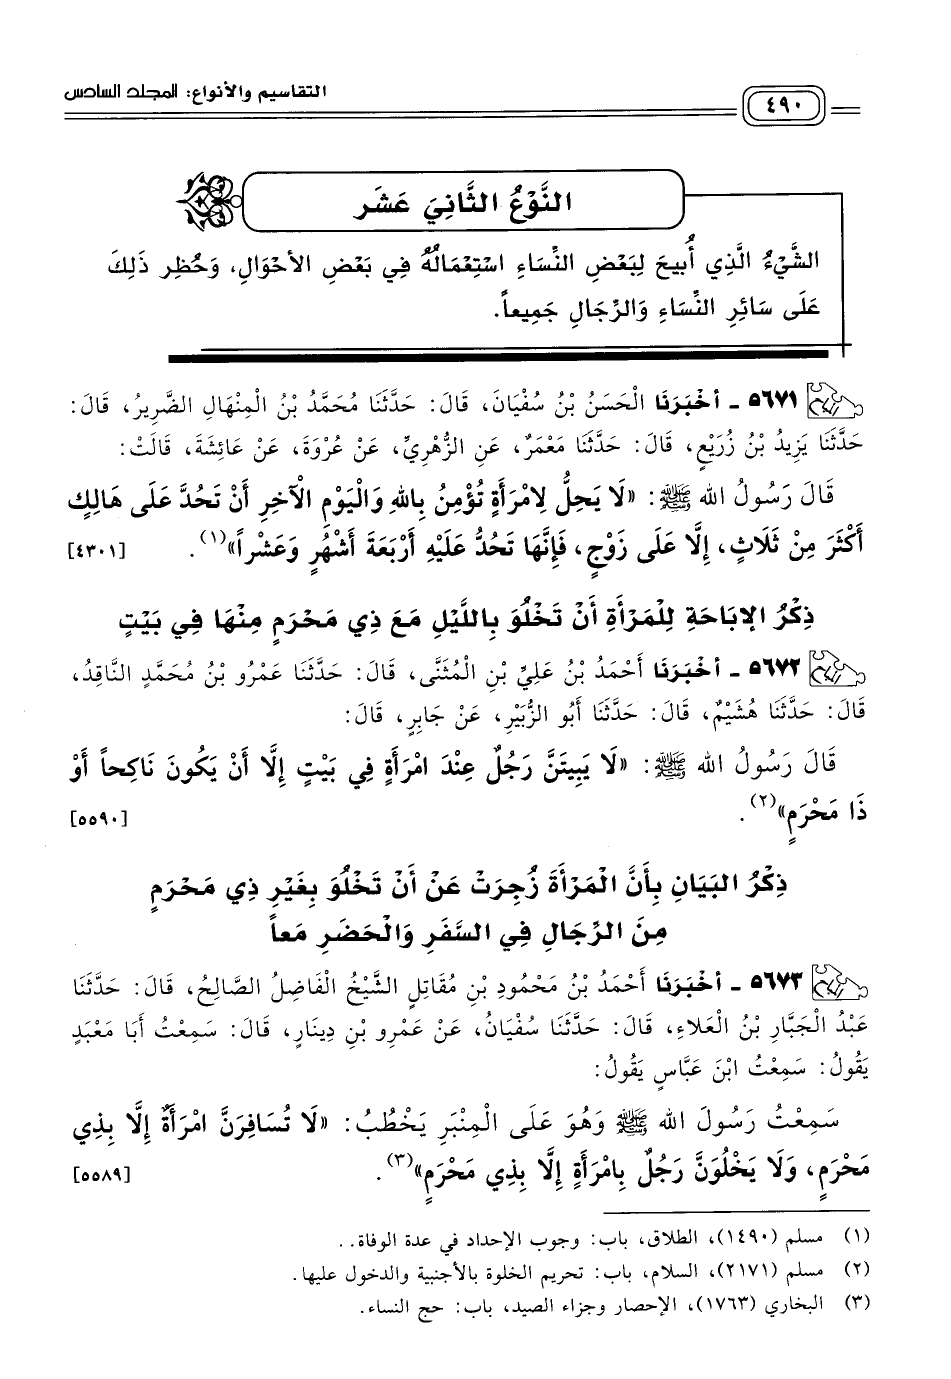 التقاسيم والأنواع: المجلد السادس
٤٩٠
النَّوْعُ الثَّانِيَ عَشَر
الشَّيْءُ الَّذِي أُبيحَ لِبَعْضِ النِّسَاءِ اسْتِعْمَالُهُ فِي بَعْضِ الأحْوَالِ، وَحُظِر ذَلِكَ
عَلَى سَائِرِ النِّسَاءِ وَالرِّجَالِ جَمِيعاً.
٥٦٧١ - أخْبَرَنَا الْحَسَنُ بْنُ سُفْيَانَ، قَالَ: حَدَّثَنَا مُحَمَّدُ بْنُ الْمِنْهَالِ الضَّرِيرُ، قَالَ:
حَدَّثَنَا يَزِيدُ بْنُ زُرَيْعٍ، قَالَ: حَدَّثَنَا مَعْمَرٌ، عَنِ الزُّهْرِيِّ، عَنْ عُرْوَةَ، عَنْ عَائِشَةَ، قَالَتْ:
قَالَ رَسُولُ الله ﷺ: «لَا يَحِلُّ لِامْرَأَةٍ تُؤْمِنُ بِاللهِ وَالْيَوْمِ الْآخِرِ أَنْ تَحُدَّ عَلَى هَالِكٍ
أَكْثَرَ مِنْ ثَلَاثٍ، إِلَّا عَلَى زَوْجٍ، فَإِنَّهَا تَحُدُّ عَلَيْهِ أَرْبَعَةَ أَشْهُرٍ وَعَشْراً»(١). [٤٣٠١]
ذِكْرُ الإبَاحَةِ لِلْمَرْأَةِ أَنْ تَخْلُوَ بِاللَّيْلِ مَعَ ذِي مَحْرَمٍ مِنْهَا فِي بَيْتٍ
٥٦٧٢ - أخْبَرَنَا أَحْمَدُ بْنُ عَلِيِّ بْنِ الْمُثَنَّى، قَالَ: حَدَّثَنَا عَمْرُو بْنُ مُحَمَّدٍ النَّاقِدُ،
قَالَ: حَدَّثَنَا هُشَيْمٌ، قَالَ: حَدَّثَنَا أَبُو الزُّبَيْرِ، عَنْ جَابِرٍ، قَالَ:
قَالَ رَسُولُ الله ﷺ: «لَا يَبِيتَنَّ رَجُلٌ عِنْدَ امْرَأَةٍ فِي بَيْتٍ إِلَّا أَنْ يَكُونَ نَاكِحاً أَوْ
ذَا مَحْرَمٍ»(٢). [٥٥٩٠]
ذِكْرُ البَيَانِ بِأَنَّ الْمَرْأَةَ زُجِرَتْ عَنْ أَنْ تَخْلُوَ بِغَيْرِ ذِي مَحْرَمٍ
مِنَ الرِّجَالِ فِي السَّفَرِ وَالْحَضَرِ مَعاً
٥٦٧٣ - أخْبَرَنَا أَحْمَدُ بْنُ مَحْمُودِ بْنِ مُقَاتِلٍ الشَّيْخُ الْفَاضِلُ الصَّالِحُ، قَالَ: حَدَّثَنَا
عَبْدُ الْجَبَّارِ بْنُ الْعَلَاءِ، قَالَ: حَدَّثَنَا سُفْيَانُ، عَنْ عَمْرِو بْنِ دِينَارٍ، قَالَ: سَمِعْتُ أَبَا مَعْبَدٍ
يَقُولُ: سَمِعْتُ ابْنَ عَبَّاسٍ يَقُولُ:
سَمِعْتُ رَسُولَ الله ﷺ وَهُوَ عَلَى الْمِنْبَرِ يَخْطُبُ: «لَا تُسَافِرَنَّ امْرَأَةٌ إِلَّا بِذِي
مَحْرَمٍ، وَلَا يَخْلُوَنَّ رَجُلٌ بِامْرَأَةٍ إِلَّا بِذِي مَحْرَمٍ»(٣). [٥٥٨٩]
(١) مسلم (١٤٩٠)، الطلاق، باب: وجوب الإحداد في عدة الوفاة..
(٢) مسلم (٢١٧١)، السلام، باب: تحريم الخلوة بالأجنبية والدخول عليها.
(٣) البخاري (١٧٦٣)، الإحصار وجزاء الصيد، باب: حج النساء.